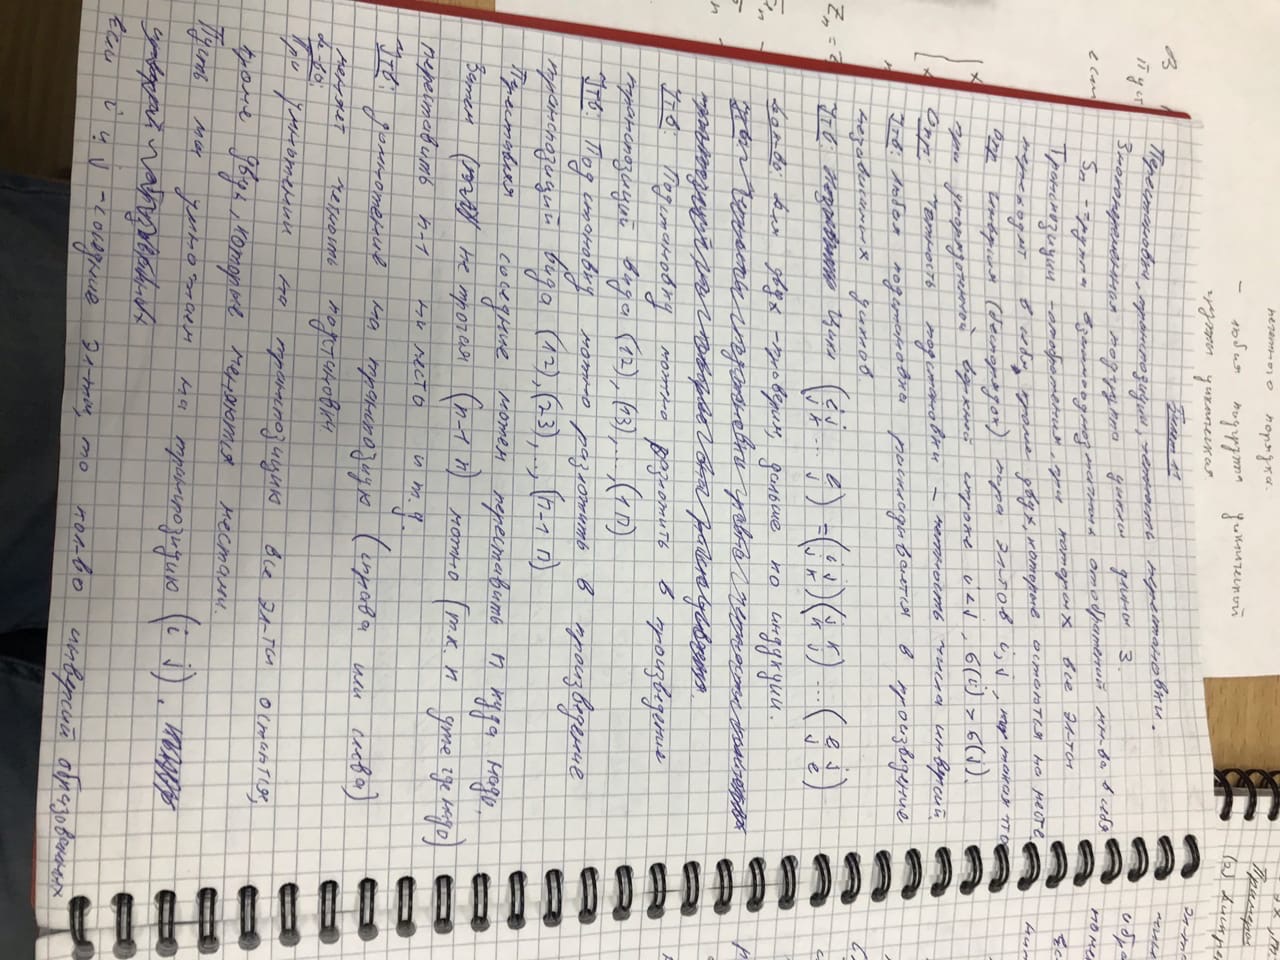 нечетного порядка.
- любая подгруппа циклической
группы циклическая
Билет 11
Перестановки, транспозиции, четность перестановки.
Знакопеременная подгруппа циклы длины 3.
Sn - группа взаимооднозначных отображений мн-ва в себя
Транспозиции - отображения, при которых все эл-ты
переходят в себя, кроме двух, которые остаются на месте
Опр инверсия (беспорядок) пара эл-тов i, j, такая что
при упорядоченной верхней строке i < j, б(i) > б(j).
Опр: Четность подстановки - четность числа инверсий.
Утв: Любая подстановка раскладывается в произведение
независимых циклов.
Утв: Цикл (i j ... e / j k ... j) = (i j / j k)(j k / k j) ... (e j / j e)
Док-во: Для двух - проверим, дальше по индукции.
Утв: Подстановку можно разложить в произведение
транспозиций вида (12), (13), ..., (1 n)
Утв: Подстановку можно разложить в произведение
транспозиций вида (12), (23), .., (n-1 n)
Переставляя соседние можем переставить n куда надо,
Затем не трогая (n-1 n) можно (т.к. n уже где надо)
переставить n-1 на место и т.д.
Утв: домножение на транспозицию (справа или слева)
меняет четность подстановки
Д-во:
При умножении на транспозицию все эл-ты остаются,
кроме двух, которые меняются местами.
Пусть мы умножаем на транспозицию (i j).
Если i и j - соседние эл-ты, то кол-во инверсий образованных